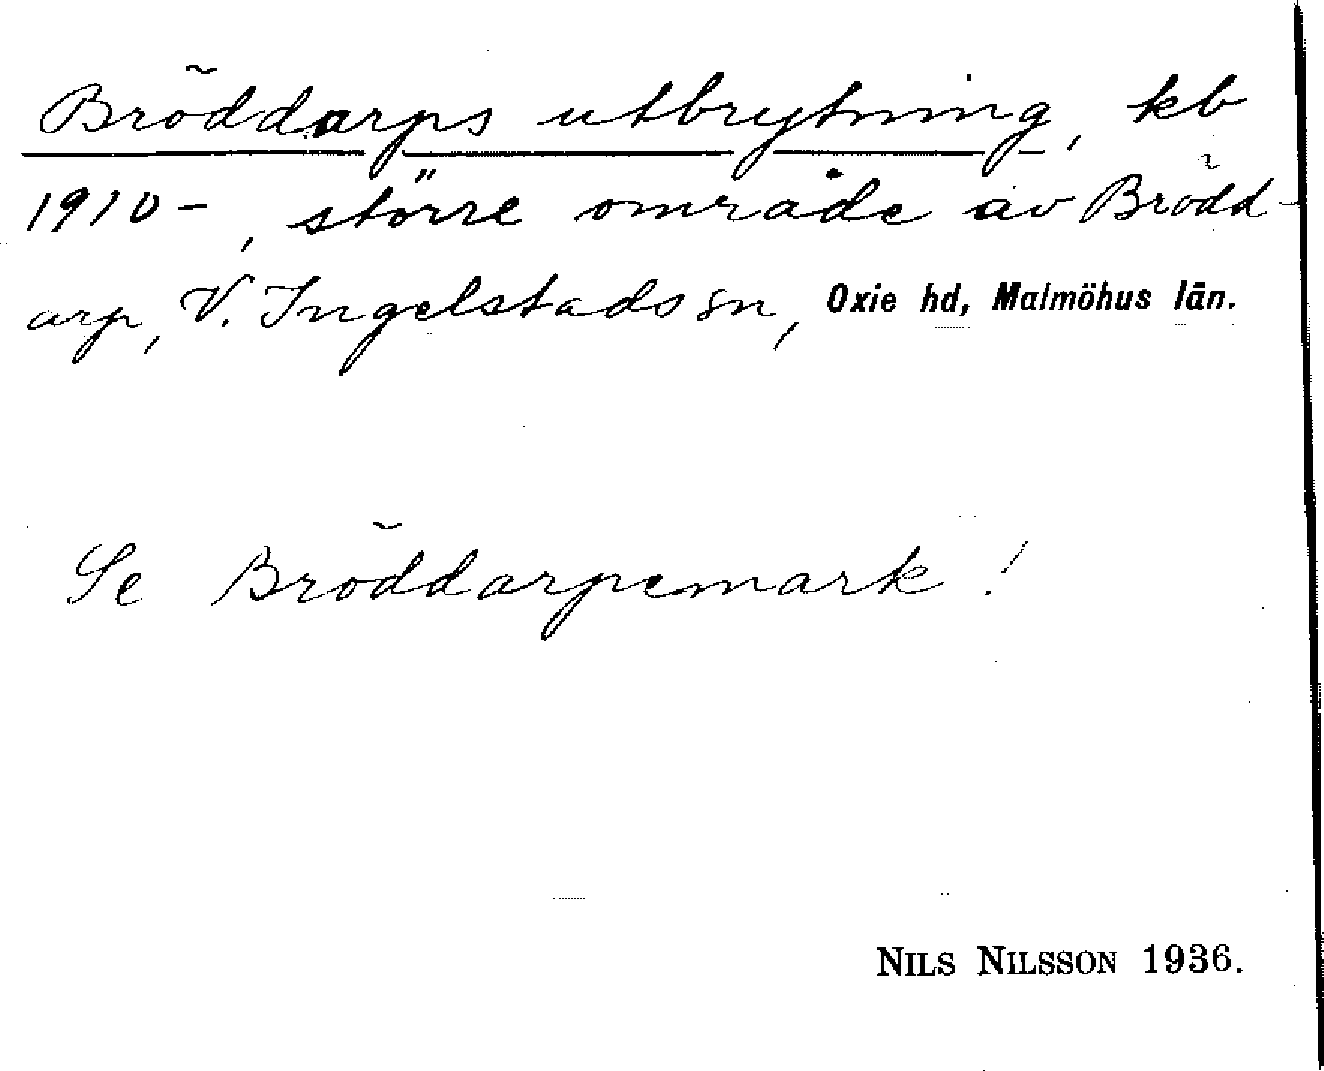 Bröddarps utbrytning, kb
1910-, större område av Brödd-
arp, V. Ingelstads sn, Oxie hd, Malmöhus län.
Se Bröddarpemark!
NILS NILSSON 1936.